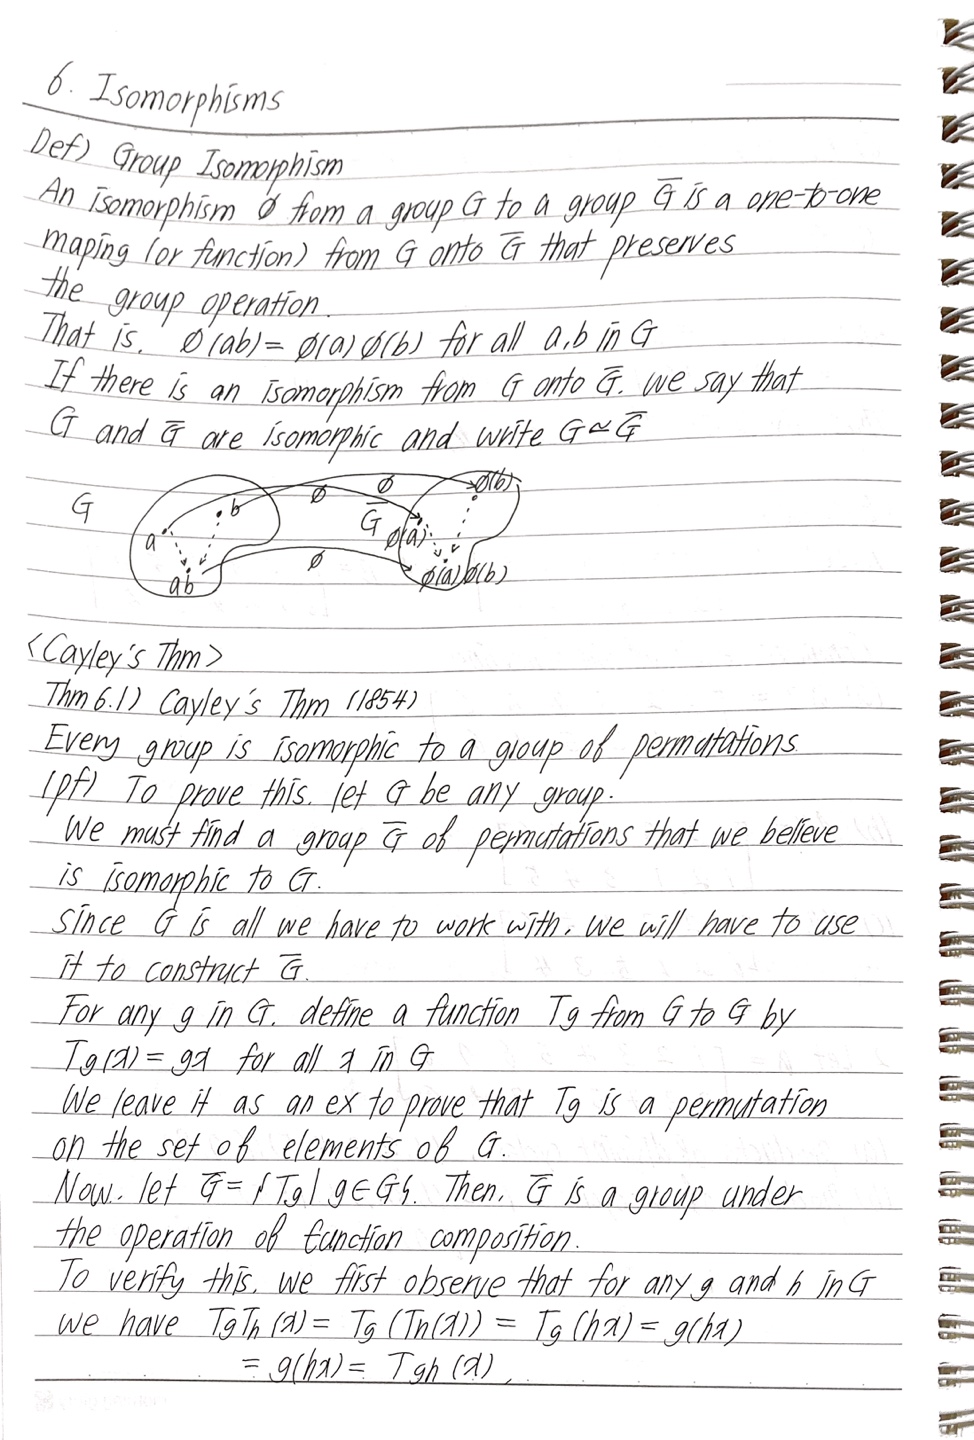 6. Isomorphisms
Def) Group Isomorphism
An isomorphism ø from a group G to a group G̅ is a one-to-one
maping (or function) from G onto G̅ that preserves
the group operation.
That is, ø(ab) = ø(a)ø(b) for all a,b in G
If there is an isomorphism from G onto G̅. we say that
G and G̅ are isomorphic and write G≃G̅
G a b ab ø ø ø G̅ ø(a) ø(b) ø(a)ø(b)
<Cayley's Thm>
Thm 6.1) Cayley's Thm (1854)
Every group is isomorphic to a group of permutations
(pf) To prove this. let G be any group.
We must find a group G̅ of permutations that we believe
is isomorphic to G.
since G is all we have to work with, we will have to use
it to construct G̅.
For any g in G. define a function Tg from G to G by
Tg(x) = gx for all x in G
We leave it as an ex to prove that Tg is a permutation
on the set of elements of G.
Now. let G̅ = {Tg | g∈G}. Then, G̅ is a group under
the operation of function composition.
To verify this, we first observe that for any g and h in G
we have TgTh(x) = Tg(Th(x)) = Tg(hx) = g(hx)
= g(hx) = Tgh(x),